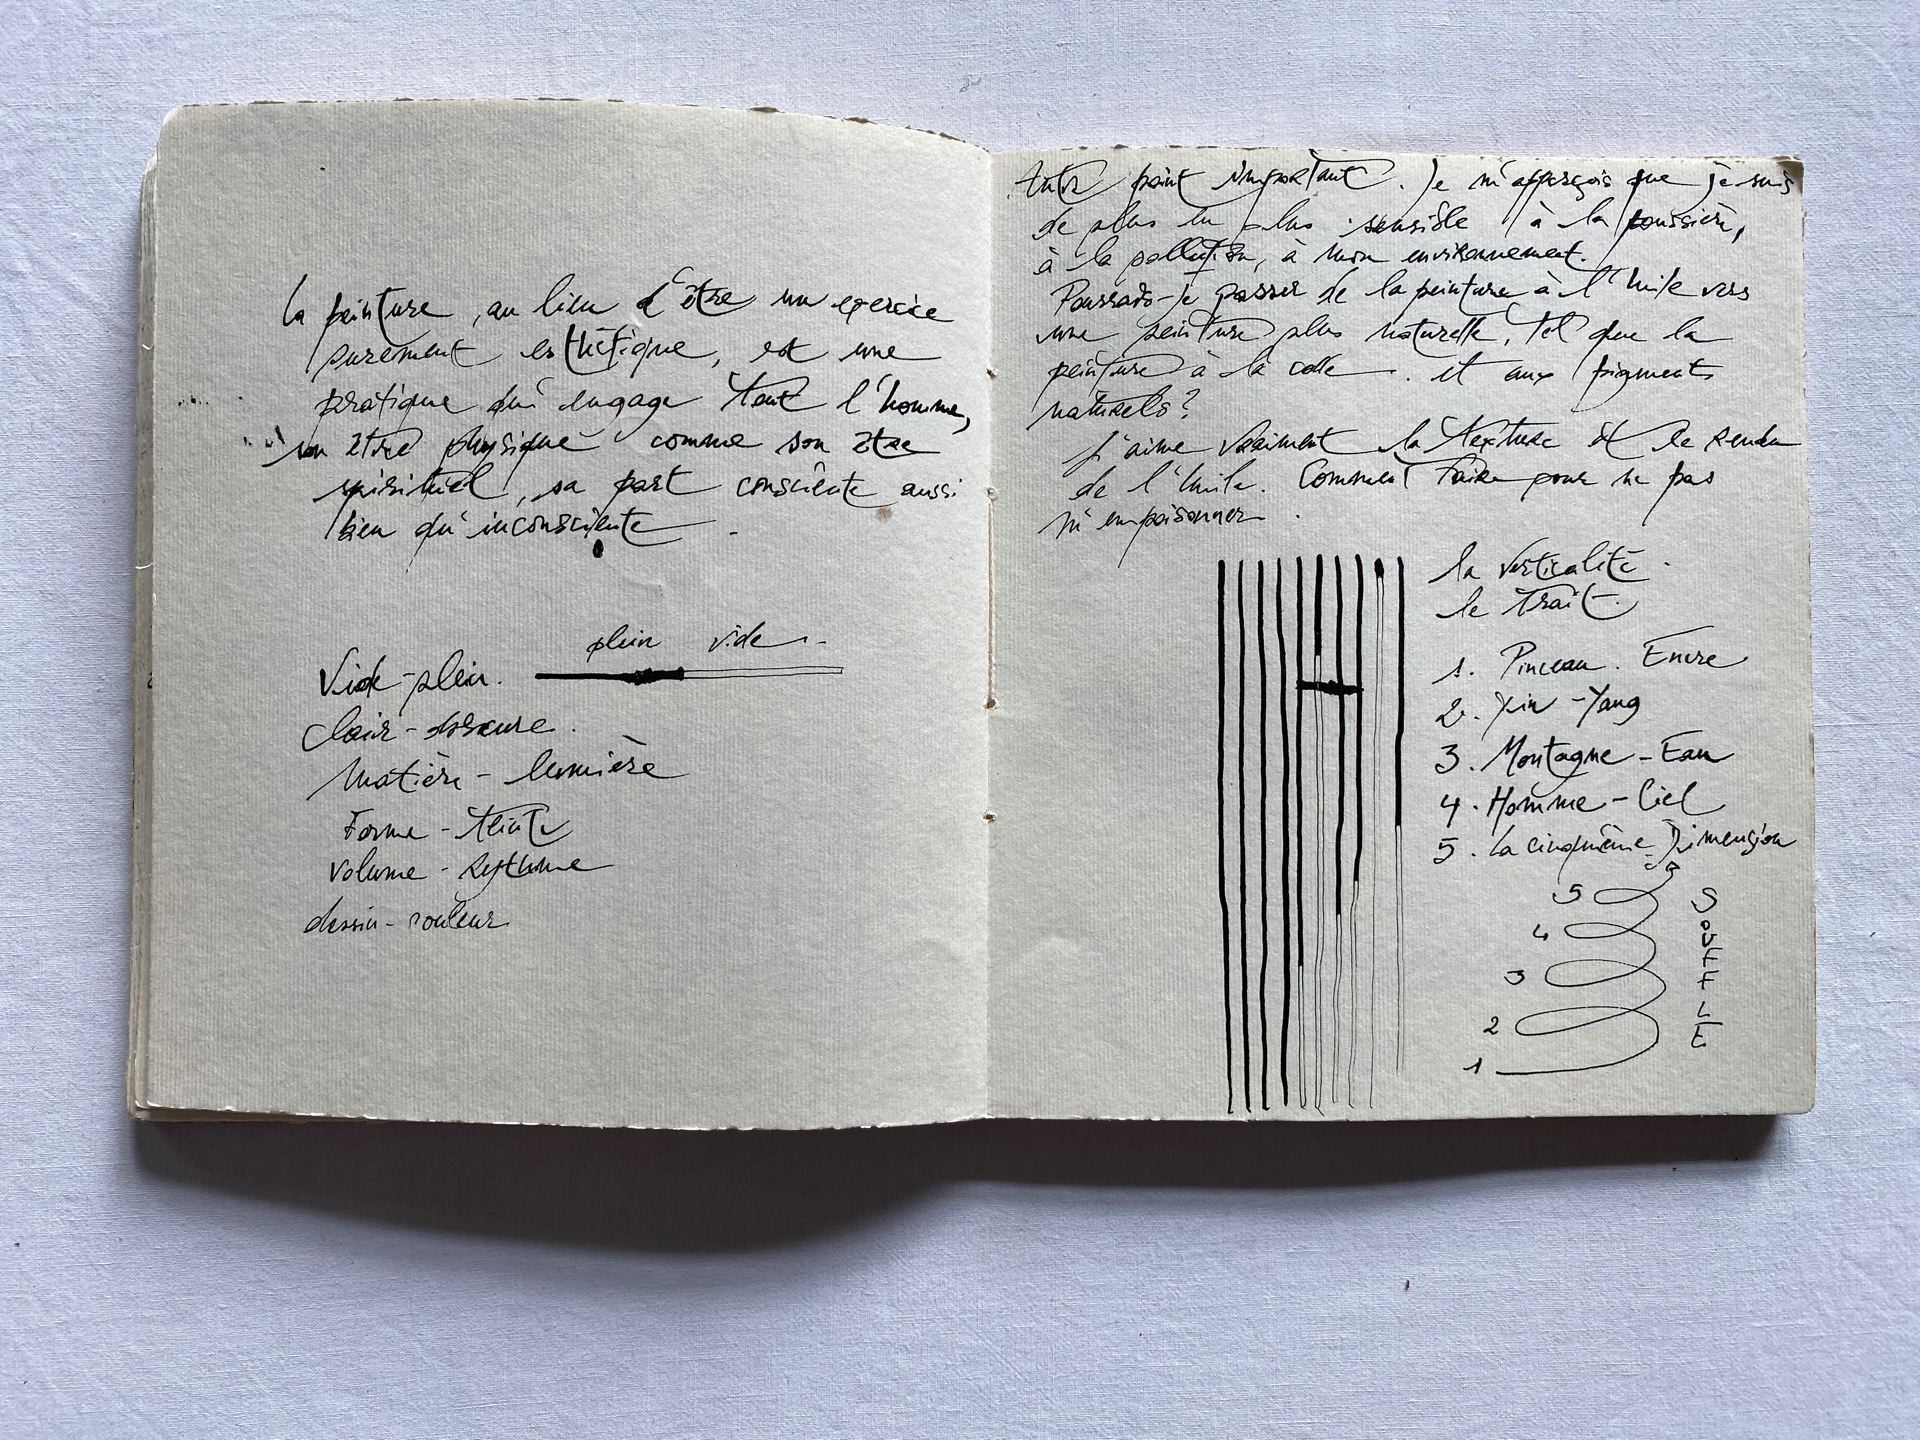 La peinture, au lieu d'être un exercice
purement esthétique, est une
pratique qui engage tout l'homme,
son être physique comme son être
spirituel, sa part consciente aussi
bien qu'inconsciente.
plein vide
Vide-plein.
Clair-obscure.
Matière-lumière
Forme-teinte
volume-rythme
dessin-couleur
Autre point important. Je m'apperçois que je suis
de plus en plus sensible à la poussière,
à la pollution, à mon environnement.
Pourrais-je passer de la peinture à l'huile vers
une peinture plus naturelle, tel que la
peinture à la colle. et aux pigments
naturels?
J'aime vraiment la texture et le rendu
de l'huile. Comment faire pour ne pas
m'empoisonner.
la verticalité.
le trait.
1. Pinceau. Encre
2. Yin-Yang
3. Montagne-Eau
4. Homme-Ciel
5. La cinquième Dimension
5
4
3
2
1
SOUFFLE